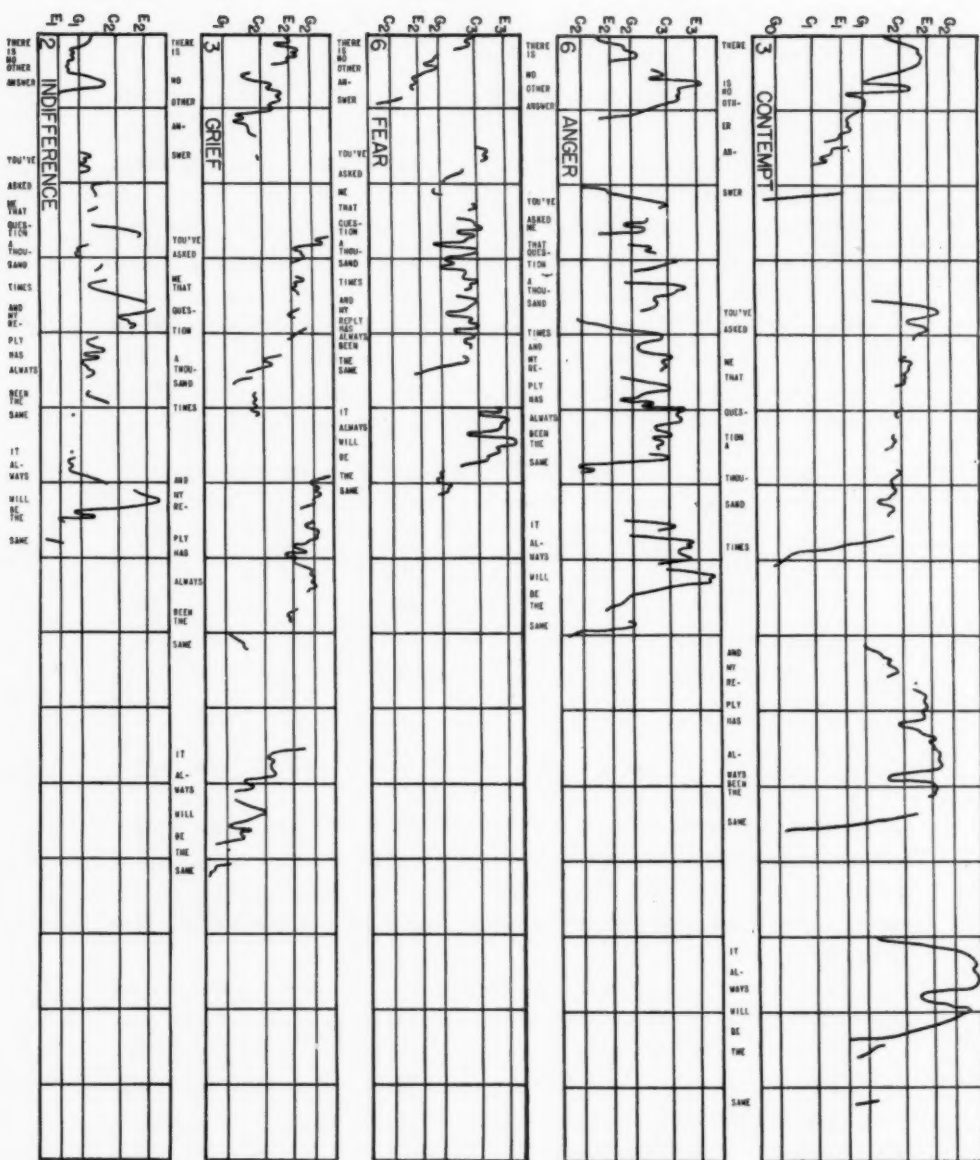 E1 G1 C2 E2
2 INDIFFERENCE
THERE
IS
NO
OTHER
ANSWER
YOU'VE
ASKED
ME
THAT
QUES-
TION
A
THOU-
SAND
TIMES
AND
MY
RE-
PLY
HAS
ALWAYS
BEEN
THE
SAME
IT
AL-
WAYS
WILL
BE
THE
SAME
G1 C2 E2 G2
3 GRIEF
THERE
IS
NO
OTHER
AN-
SWER
YOU'VE
ASKED
ME
THAT
QUES-
TION
A
THOU-
SAND
TIMES
AND
MY
RE-
PLY
HAS
ALWAYS
BEEN
THE
SAME
IT
AL-
WAYS
WILL
BE
THE
SAME
C2 E2 G2 C3 E3
6 FEAR
THERE
IS
NO
OTHER
AN-
SWER
YOU'VE
ASKED
ME
THAT
QUES-
TION
A
THOU-
SAND
TIMES
AND
MY
REPLY
HAS
ALWAYS
BEEN
THE
SAME
IT
ALWAYS
WILL
BE
THE
SAME
C2 E2 G2 C3 E3
6 ANGER
THERE
IS
NO
OTHER
ANSWER
YOU'VE
ASKED
ME
THAT
QUES-
TION
A
THOU-
SAND
TIMES
AND
MY
RE-
PLY
HAS
ALWAYS
BEEN
THE
SAME
IT
AL-
WAYS
WILL
BE
THE
SAME
G0 C1 E1 G1 C2 E2 G2
3 CONTEMPT
THERE
IS
NO
OTH-
ER
AN-
SWER
YOU'VE
ASKED
ME
THAT
QUES-
TION
A
THOU-
SAND
TIMES
AND
MY
RE-
PLY
HAS
AL-
WAYS
BEEN
THE
SAME
IT
AL-
WAYS
WILL
BE
THE
SAME